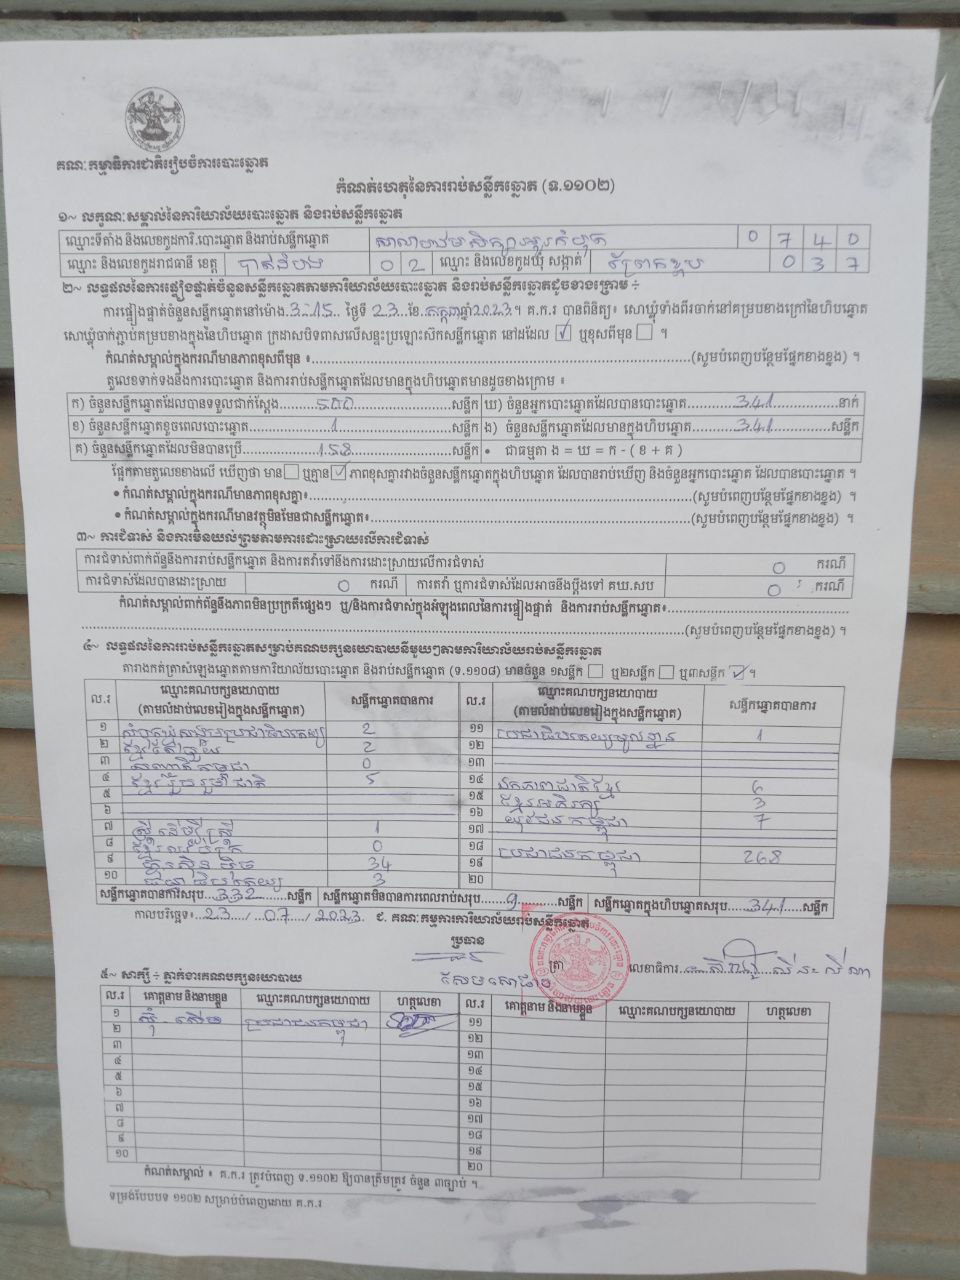 គណៈកម្មាធិការជាតិរៀបចំការបោះឆ្នោត
កំណត់ហេតុនៃការរាប់សន្លឹកឆ្នោត (ទ.១១០២)
១~ លក្ខណៈសម្គាល់នៃការិយាល័យបោះឆ្នោត និងរាប់សន្លឹកឆ្នោត
ឈ្មោះទីតាំង និងលេខកូដការិ.បោះឆ្នោត និងរាប់សន្លឹកឆ្នោត 0 7 4 0
ឈ្មោះ និងលេខកូដរាជធានី ខេត្ត បាត់ដំបង 0 2 ឈ្មោះ និងលេខកូដឃុំ សង្កាត់ 0 3 7
២~ លទ្ធផលនៃការផ្ទៀងផ្ទាត់ចំនួនសន្លឹកឆ្នោតតាមការិយាល័យបោះឆ្នោត និងរាប់សន្លឹកឆ្នោតដូចខាងក្រោម ÷
ការផ្ទៀងផ្ទាត់ចំនួនសន្លឹកឆ្នោតនៅម៉ោង 3:15 ថ្ងៃទី 23 ខែ កក្កដា ឆ្នាំ 2023 ។ គ.ក.រ បានពិនិត្យ៖ សោឃ្លុំទាំងពីរចាក់នៅគម្របខាងក្រៅនៃហិបឆ្នោត
សោឃ្លុំចាក់ភ្ជាប់គម្របខាងក្នុងនៃហិបឆ្នោត ក្រដាសបិទពាសលើសន្ទះប្រឡោះស៊កសន្លឹកឆ្នោត នៅដដែល ☑ ឬខុសពីមុន ☐ ។
កំណត់សម្គាល់ក្នុងករណីមានភាពខុសពីមុន ៖ (សូមបំពេញបន្ថែមផ្នែកខាងខ្នង) ។
តួលេខទាក់ទងនឹងការបោះឆ្នោត និងការរាប់សន្លឹកឆ្នោតដែលមានក្នុងហិបឆ្នោតមានដូចខាងក្រោម ៖
ក) ចំនួនសន្លឹកឆ្នោតដែលបានទទួលជាក់ស្តែង 500 សន្លឹក ឃ) ចំនួនអ្នកបោះឆ្នោតដែលបានបោះឆ្នោត 341 នាក់
ខ) ចំនួនសន្លឹកឆ្នោតខូចពេលបោះឆ្នោត 1 សន្លឹក ង) ចំនួនសន្លឹកឆ្នោតដែលមានក្នុងហិបឆ្នោត 341 សន្លឹក
គ) ចំនួនសន្លឹកឆ្នោតដែលមិនបានប្រើ 158 សន្លឹក • ជាធម្មតា ង = ឃ = ក - ( ខ + គ )
ផ្អែកតាមតួលេខខាងលើ ឃើញថា មាន ☐ ឬគ្មាន ☑ ភាពខុសគ្នារវាងចំនួនសន្លឹកឆ្នោតក្នុងហិបឆ្នោត ដែលបានរាប់ឃើញ និងចំនួនអ្នកបោះឆ្នោត ដែលបានបោះឆ្នោត ។
• កំណត់សម្គាល់ក្នុងករណីមានភាពខុសគ្នា៖ (សូមបំពេញបន្ថែមផ្នែកខាងខ្នង) ។
• កំណត់សម្គាល់ក្នុងករណីមានវត្ថុមិនមែនជាសន្លឹកឆ្នោត៖ (សូមបំពេញបន្ថែមផ្នែកខាងខ្នង) ។
៣~ ការជំទាស់ និងការមិនយល់ព្រមតាមការដោះស្រាយលើការជំទាស់
ការជំទាស់ពាក់ព័ន្ធនឹងការរាប់សន្លឹកឆ្នោត និងការតវ៉ាទៅនឹងការដោះស្រាយលើការជំទាស់ 0 ករណី
ការជំទាស់ដែលបានដោះស្រាយ 0 ករណី ការតវ៉ា ឬការជំទាស់ដែលអាចនឹងប្តឹងទៅ គឃ.សប 0 ករណី
កំណត់សម្គាល់ពាក់ព័ន្ធនឹងភាពមិនប្រក្រតីផ្សេងៗ ឬ/និងការជំទាស់ក្នុងអំឡុងពេលនៃការផ្ទៀងផ្ទាត់ និងការរាប់សន្លឹកឆ្នោត៖
(សូមបំពេញបន្ថែមផ្នែកខាងខ្នង) ។
៤~ លទ្ធផលនៃការរាប់សន្លឹកឆ្នោតសម្រាប់គណបក្សនយោបាយនីមួយៗតាមការិយាល័យរាប់សន្លឹកឆ្នោត
តារាងកត់ត្រាសំឡេងឆ្នោតតាមការិយាល័យបោះឆ្នោត និងរាប់សន្លឹកឆ្នោត (ទ.១១០៨) មានចំនួន ១សន្លឹក ☐ ឬ២សន្លឹក ☐ ឬ៣សន្លឹក ☑ ។
ល.រ ឈ្មោះគណបក្សនយោបាយ (តាមលំដាប់លេខរៀងក្នុងសន្លឹកឆ្នោត) សន្លឹកឆ្នោតបានការ ល.រ ឈ្មោះគណបក្សនយោបាយ (តាមលំដាប់លេខរៀងក្នុងសន្លឹកឆ្នោត) សន្លឹកឆ្នោតបានការ
១ សំបុកឃ្មុំសង្គមប្រជាធិបតេយ្យ 2 ១១ ប្រជាធិបតេយ្យមូលដ្ឋាន 1
២ ខ្មែរតែមួយ 2 ១២
៣ សញ្ជាតិកម្ពុជា 0 ១៣
៤ ខ្មែររួបរួមជាតិ 5 ១៤ ឯកភាពជាតិខ្មែរ 6
៥ ១៥ ខ្មែរអភិរក្ស 3
៦ ១៦ យុវជនកម្ពុជា 7
៧ ស្ត្រីដើម្បីស្ត្រី 1 ១៧
៨ 0 ១៨ ប្រជាជនកម្ពុជា 268
៩ ហ៊្វុនស៊ិនប៉ិច 34 ១៩
១០ ធម្មាធិបតេយ្យ 3 ២០
សន្លឹកឆ្នោតបានការសរុប 332 សន្លឹក សន្លឹកឆ្នោតមិនបានការពេលរាប់សរុប 9 សន្លឹក សន្លឹកឆ្នោតក្នុងហិបឆ្នោតសរុប 341 សន្លឹក
កាលបរិច្ឆេទ៖ 23 / 07 / 2023 ជ. គណៈកម្មការការិយាល័យរាប់សន្លឹកឆ្នោត
ប្រធាន
ត្រា លេខាធិការ
៥~ សាក្សី ÷ ភ្នាក់ងារគណបក្សនយោបាយ
ល.រ គោត្តនាម និងនាមខ្លួន ឈ្មោះគណបក្សនយោបាយ ហត្ថលេខា ល.រ គោត្តនាម និងនាមខ្លួន ឈ្មោះគណបក្សនយោបាយ ហត្ថលេខា
១ ប្រជាជនកម្ពុជា ១១
២ ១២
៣ ១៣
៤ ១៤
៥ ១៥
៦ ១៦
៧ ១៧
៨ ១៨
៩ ១៩
១០ ២០
កំណត់សម្គាល់ ៖ គ.ក.រ ត្រូវបំពេញ ទ.១១០២ ឱ្យបានត្រឹមត្រូវ ចំនួន ៣ច្បាប់ ។
ទម្រង់បែបបទ ១១០២ សម្រាប់បំពេញដោយ គ.ក.រ